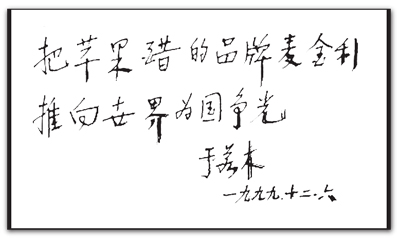 把苹果醋的品牌麦金利
推向世界为国争光
于若木
一九九九.十二.六